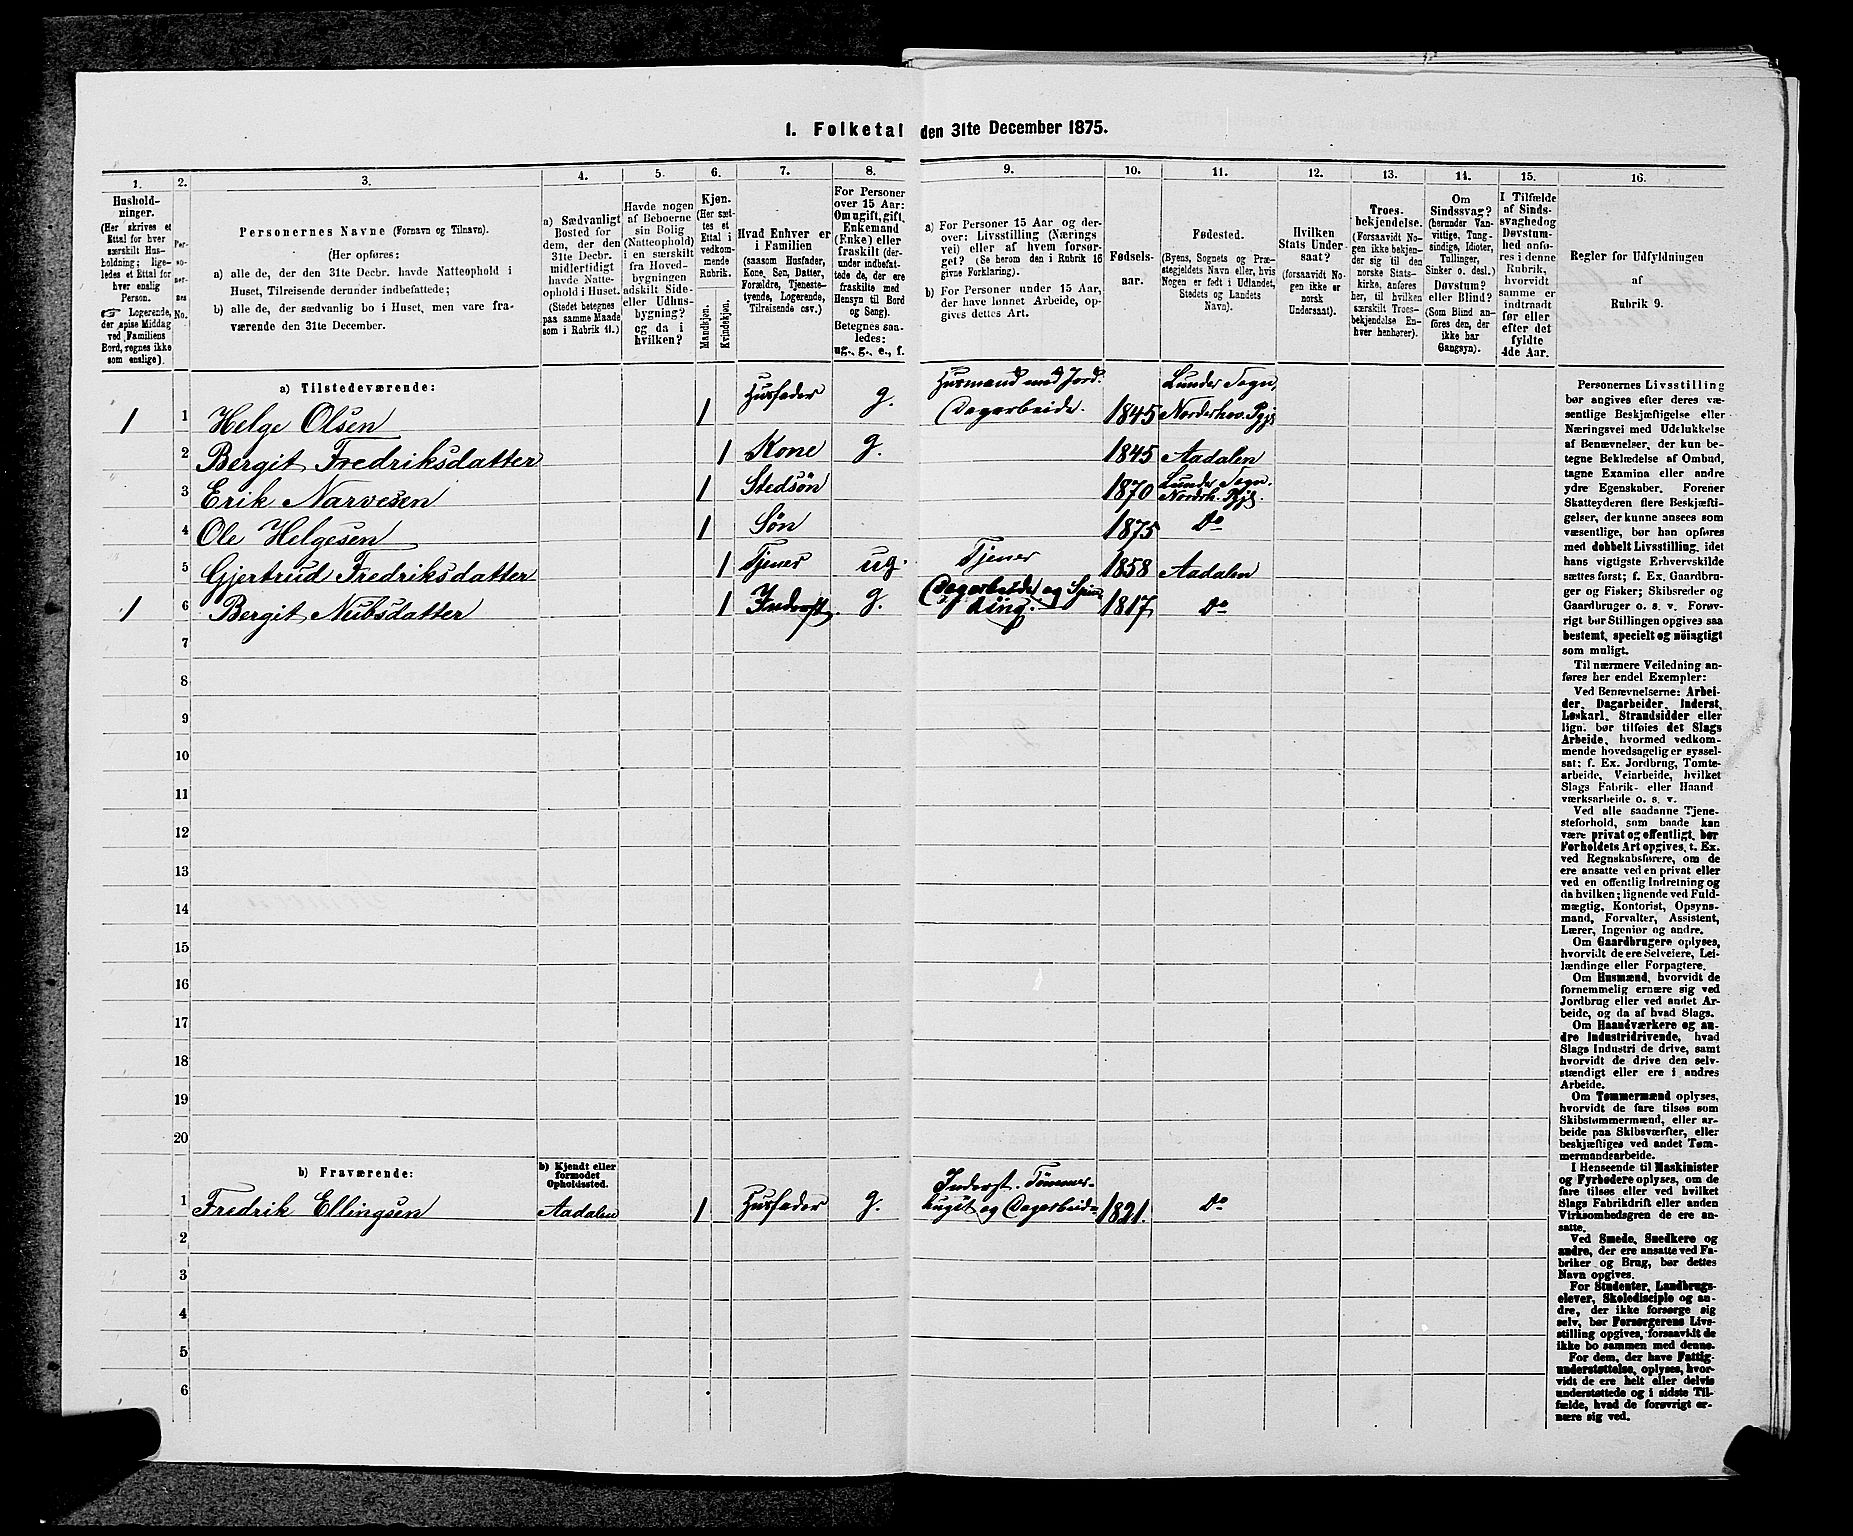 1. Folketal den 31te December 1875.
1.
Hushold-
ninger.
(Her skrives et
Ettal for hver
særskilt Hus-
holdning; lige-
ledes et Ettal for
hver enslig
Person.
☞ Logerende,
der spise Middag
ved Familiens
Bord, regnes ikke
som enslige).
2.
Per-
so-
ner-
nes
No.
3.
Personernes Navne (Fornavn og Tilnavn).
(Her opføres:
a) alle de, der den 31te Decbr. havde Natteophold i
Huset, Tilreisende derunder indbefattede;
b) alle de, der sædvanlig bo i Huset, men vare fra-
værende den 31te December.
4.
a) Sædvanligt
Bosted for
dem, der den
31te Decbr.
midlertidigt
havde Natte-
ophold i Huset.
(Stedet betegnes
paa samme Maade
som i Rubrik 11.)
5.
Havde nogen
af Beboerne
sin Bolig
(Natteophold)
i en særskilt
fra Hoved-
bygningen
adskilt Side-
eller Udhus-
bygning?
og da i
hvilken?
6.
Kjøn.
(Her sæt-
tes et
Ettal i
vedkom-
mende
Rubrik.
Mandkjøn.
Kvindekjøn.
7.
Hvad Enhver er
i Familien
(saasom Husfader,
Kone, Søn, Datter,
Forældre, Tjeneste-
tyende, Logerende,
Tilreisende osv.)
8.
For Personer
over 15 Aar:
Om ugift, gift,
Enkemand
(Enke) eller
fraskilt (der-
under indbefat-
tede de, der ere
fraskilte med
Hensyn til Bord
og Seng).
Betegnes saa-
ledes:
ug., g., e., f.
9.
a) For Personer 15 Aar og der-
over: Livsstilling (Nærings
vei) eller af hvem forsør-
get? (Se herom den i Rubrik 16
givne Forklaring).
b) For Personer under 15 Aar,
der have lønnet Arbeide, op-
gives dettes Art.
10.
Fødsels-
aar.
11.
Fødested.
(Byens, Sognets og Præ-
stegjeldets Navn eller, hvis
Nogen er født i Udlandet,
Stedets og Landets
Navn).
12.
Hvilken
Stats Under-
saat?
(forsaavidt No-
gen ikke er
norsk
Undersaat).
13.
Troes-
bekjendelse.
(Forsaavidt No-
gen ikke bekjen-
der sig til den
norske Stats-
kirke, anføres
her, til hvilken
særskilt Troes-
bekjendelse En-
hver henhører).
14.
Om
Sindssvag?
(herunder Van-
vittige, Tung-
sindige, Idioter,
Tullinger,
Sinker o. desl.)
Døvstum?
eller Blind?
(Som Blind an-
føres den, der
ikke har
Gangsyn).
15.
I Tilfælde
af Sinds-
svaghed og
Døvstum-
hed anfø-
res i denne
Rubrik,
hvorvidt
samme er
indtraadt
før eller
efter det
fyldte
4de Aar.
16.
Regler for Udfyldningen
af
Rubrik 9.
a) Tilstedeværende:
1 1 Helge Olsen 1 Husfader g. Husmand med Jord. Dagarbeide. 1845 Lunder Sogn, Norderhov. Pgjd
2 Bergit Fredriksdatter 1 Kone g. 1845 Aadalen
3 Erik Narvesen 1 Stedsøn 1870 Lunder Sogn. Nordrh. Pgjd.
4 Ole Helgesen 1 Søn 1875 Do
5 Gjertrud Fredriksdatter 1 Tjener ug. Tjener 1858 Aadalen
1 6 Bergit Nubsdatter 1 Inderst. g. Dagarbeide og Spin- ding. 1817 Do
7
8
9
10
11
12
13
14
15
16
17
18
19
20
b) Fraværende:
b) Kjendt eller
formodet
Opholdssted.
1 Fredrik Ellingsen Aadalen 1 Husfader g. Inderst. Tømmer- huget og Dagarbeide 1821. Do
2
3
4
5
6
Personernes Livsstilling
bør angives efter deres væ-
sentlige Beskjæftigelse eller
Næringsvei med Udelukkelse
af Benævnelser, der kun be-
tegne Beklædelse af Ombud,
tagne Examina eller andre
ydre Egenskaber. Forener
Skatteyderen flere Beskjæfti-
gelser, der kunne ansees som
væsentlige, bør han opføres
med dobbelt Livsstilling, idet
hans vigtigste Erhvervskilde
sættes først; f. Ex. Gaardbru-
ger og Fisker; Skibsreder og
Gaardbruger o. s. v. Forøv-
rigt bør Stillingen opgives saa
bestemt, specielt og nöiagtigt
som muligt.
Til nærmere Veiledning an-
føres her endel Exempler:
Ved Benævnelserne: Arbei-
der, Dagarbeider, Inderst,
Løskarl, Strandsidder eller
lign. bør tilføies det Slags
Arbeide, hvormed vedkom-
mende hovedsagelig er syssel-
sat; f. Ex. Jordbrug, Tomte-
arbeide, Veiarbeide, hvilket
Slags Fabrik- eller Haand
værksarbeide o. s. v.
Ved alle saadanne Tjene-
steforhold, som baade kan
være privat og offentligt, bør
Forholdets Art opgives, t. Ex.
ved Regnskabsførere, om de
ere ansatte ved en privat eller
ved en offentlig Indretning og
da hvilken; lignende ved Fuld-
mægtig, Kontorist, Opsyns-
mand, Forvalter, Assistent,
Lærer, Ingeniør og andre.
Om Gaardbrugere oplyses,
hvorvidt de ere Selveiere, Lei-
lændinge eller Forpagtere.
Om Husmænd, hvorvidt de
fornemmelig ernære sig ved
Jordbrug eller ved andet Ar-
beide, og da af hvad Slags.
Om Haandværkere og an-
dre Industridrivende, hvad
Slags Industri de drive, samt
hvorvidt de drive den selv-
stændigt eller ere i andres
Arbeide.
Om Tømmermænd oplyses,
hvorvidt de fare tilsøs som
Skibstømmermænd, eller ar-
beide paa Skibsværfter, eller
beskjæftiges ved andet Tøm-
mermandsarbeide.
I Henseende til Maskinister
og Fyrbødere oplyses, om de
fare tilsøs eller ved hvilket
Slags Fabrikdrift eller anden
Virksomhedsgren de ere an-
satte.
Ved Smede, Snedkere og
andre, der ere ansatte ved Fa-
briker og Brug, bør dettes
Navn opgives.
For Studenter, Landbrugs-
elever, Skoledisciple og an-
dre, der ikke forsørge sig
selv, bør Forsørgerens Livs-
stilling opgives, forsaavidt de
ikke bo sammen med denne.
For dem, der have Fattig-
understøttelse, oplyses, hvor-
vidt de ere helt eller delvis
understøttede og i sidste Til-
fælde, hvad de forøvrigt er-
nære sig ved.